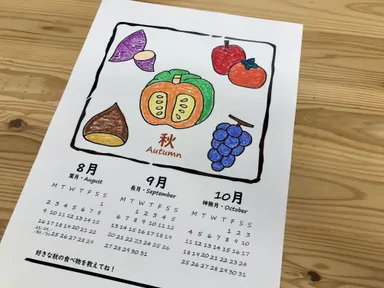 秋
Autumn
8月
葉月・August
M T W T F S S
1
2 3 4 5 6 7 8
9 10 11 12 13 14 15
16 17 18 19 20 21 22
25 26 27 28 29
9月
長月・September
M T W T F S S
1 2 3 4 5
6 7 8 9 10 11 12
13 14 15 16 17 18 19
20 21 22 23 24 25 26
27 28 29 30
10月
神無月・October
M T W T F S S
1 2 3
4 5 6 7 8 9 10
11 12 13 14 15 16 17
18 19 20 21 22 23 24
25 26 27 28 29 30 31
好きな秋の食べ物を教えてね！